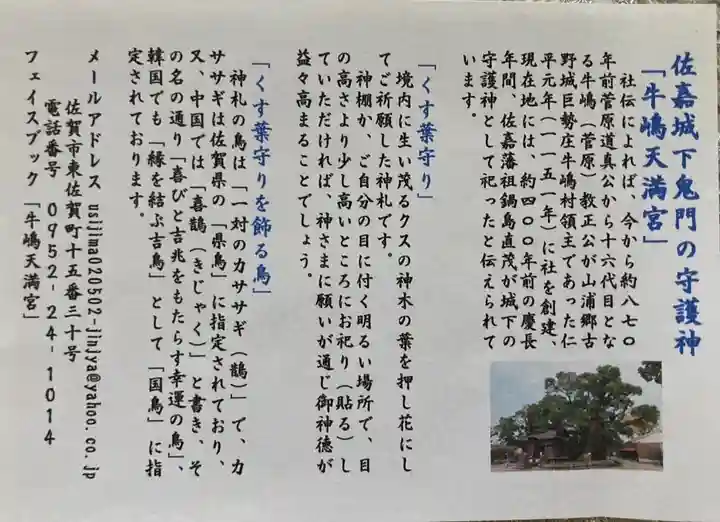 佐嘉城下鬼門の守護神
「牛嶋天満宮」
社伝によれば、今から約八七〇
年前菅原道真公から十六代目とな
る牛嶋（菅原）教正公が山浦郷古
野城巨勢庄牛嶋村領主であった仁
平元年（一一五一年）に社を創建、
現在地には、約四〇〇年前の慶長
年間、佐嘉藩祖鍋島直茂が城下の
守護神として祀ったと伝えられて
います。
「くす葉守り」
境内に生い茂るクスの神木の葉を押し花にし
てご祈願した神札です。
神棚か、ご自分の目に付く明るい場所で、目
の高さより少し高いところにお祀り（貼る）し
ていただければ、神さまに願いが通じ御神徳が
益々高まることでしょう。
「くす葉守りを飾る鳥」
神札の鳥は「一対のカササギ（鵲）」で、カ
ササギは佐賀県の「県鳥」に指定されており、
又、中国では「喜鵲（きじゃく）」と書き、そ
の名の通り「喜びと吉兆をもたらす幸運の鳥」、
韓国でも「縁を結ぶ吉鳥」として「国鳥」に指
定されております。
メールアドレス usijima020502-jinjya@yahoo.co.jp
佐賀市東佐賀町十五番三十号
電話番号 0952-24-1014
フェイスブック「牛嶋天満宮」